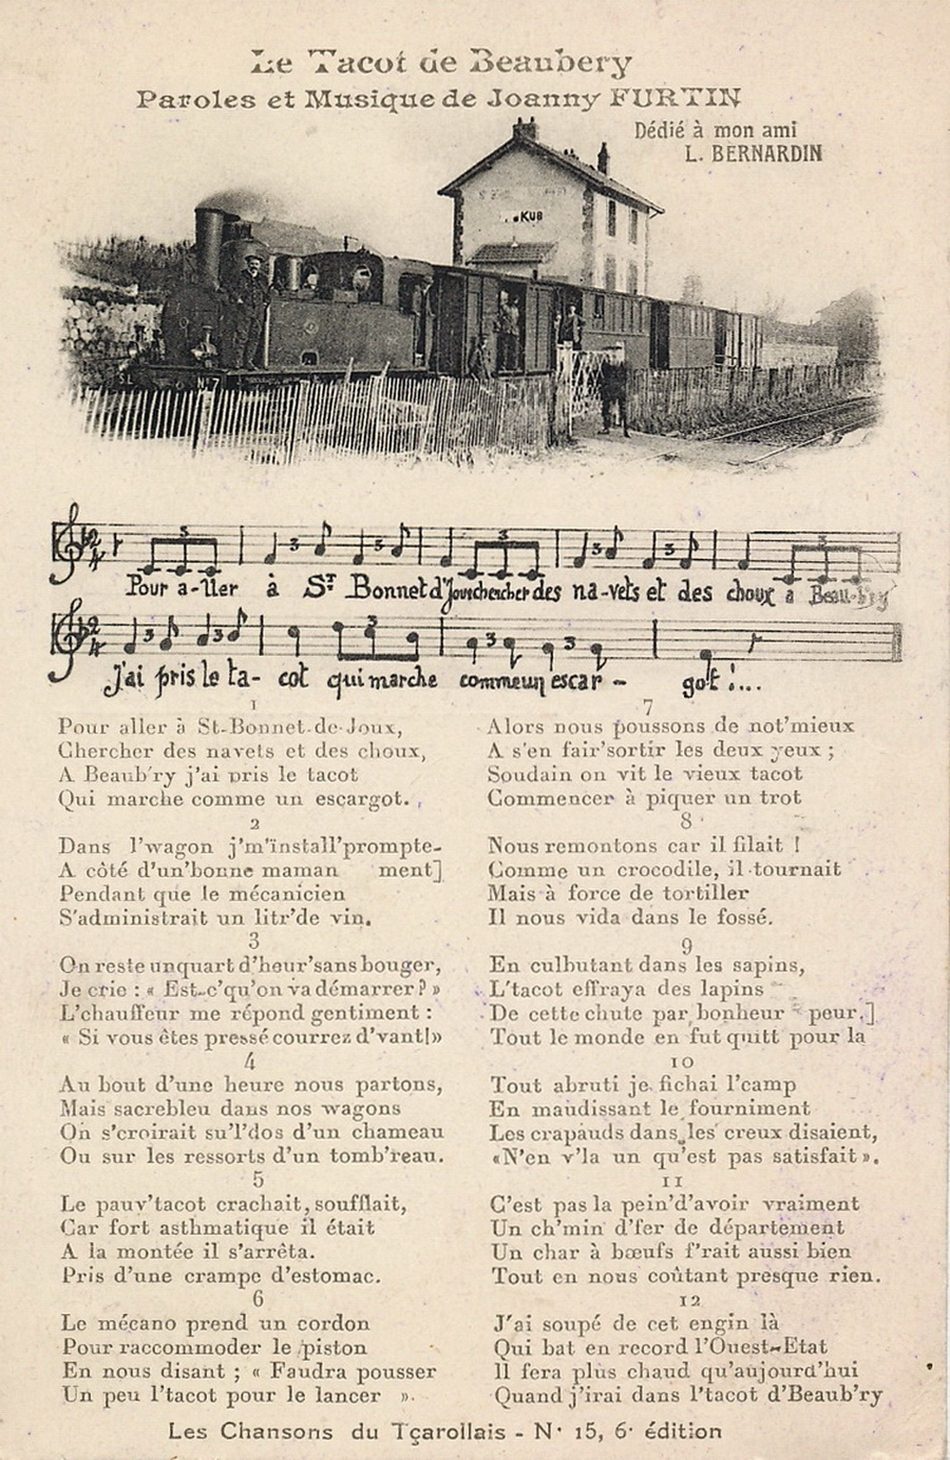 Le Tacot de Beaubery
Paroles et Musique de Joanny FURTIN
Dédié à mon ami
L. BERNARDIN
KUB
N°7
3 3 3 3 3 3 3
Pour a-ller à St Bonnet d'Joux chercher des na-vets et des choux a Beau-b'ry
3 3 3 3
J'ai pris le ta- cot qui marche comme un escar- got !...
1
Pour aller à St-Bonnet-de-Joux,
Chercher des navets et des choux,
A Beaub'ry j'ai pris le tacot
Qui marche comme un escargot.
2
Dans l'wagon j'm'install'prompte-
A côté d'un'bonne maman ment]
Pendant que le mécanicien
S'administrait un litr'de vin.
3
On reste un quart d'heur'sans bouger,
Je crie : « Est-c'qu'on va démarrer ? »
L'chauffeur me répond gentiment :
« Si vous êtes pressé courrez d'vant!»
4
Au bout d'une heure nous partons,
Mais sacrebleu dans nos wagons
On s'croirait su'l'dos d'un chameau
Ou sur les ressorts d'un tomb'reau.
5
Le pauv'tacot crachait, soufflait,
Car fort asthmatique il était
A la montée il s'arrêta.
Pris d'une crampe d'estomac.
6
Le mécano prend un cordon
Pour raccommoder le piston
En nous disant ; « Faudra pousser
Un peu l'tacot pour le lancer ».
7
Alors nous poussons de not'mieux
A s'en fair'sortir les deux yeux ;
Soudain on vit le vieux tacot
Commencer à piquer un trot
8
Nous remontons car il filait !
Comme un crocodile, il tournait
Mais à force de tortiller
Il nous vida dans le fossé.
9
En culbutant dans les sapins,
L'tacot effraya des lapins
De cette chute par bonheur peur.]
Tout le monde en fut quitt pour la
10
Tout abruti je fichai l'camp
En maudissant le fourniment
Les crapauds dans les creux disaient,
«N'en v'la un qu'est pas satisfait».
11
C'est pas la pein'd'avoir vraiment
Un ch'min d'fer de département
Un char à bœufs f'rait aussi bien
Tout en nous coûtant presque rien.
12
J'ai soupé de cet engin là
Qui bat en record l'Ouest-Etat
Il fera plus chaud qu'aujourd'hui
Quand j'irai dans l'tacot d'Beaub'ry
Les Chansons du Tçarollais - N· 15, 6· édition